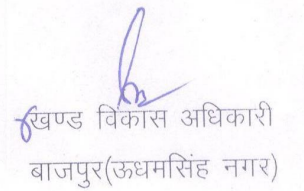 खण्ड विकास अधिकारी
बाजपुर(ऊधमसिंह नगर)